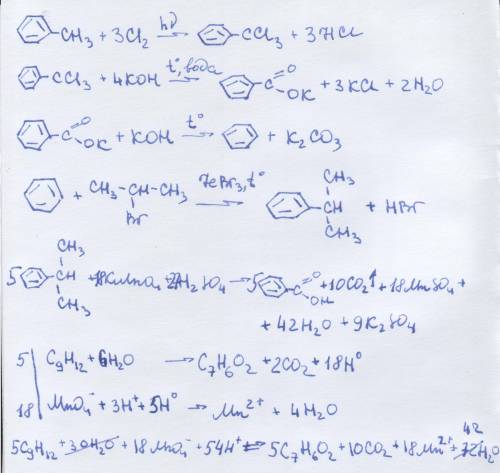 CH₃ + 3Cl₂ —hν→ CCl₃ + 3HCl
CCl₃ + 4KOH —t°, вода→ C O OK + 3KCl + 2H₂O
C O OK + KOH —t°→ + K₂CO₃
+ CH₃-CH-CH₃ Br —FeBr₃, t°→ CH₃ CH CH₃ + HBr
5 CH₃ CH CH₃ + 18KMnO₄ + 27H₂SO₄ → 5 C O OH + 10CO₂↑ + 18MnSO₄ +
+ 42H₂O + 9K₂SO₄
5 | C₉H₁₂ + 6H₂O → C₇H₆O₂ + 2CO₂ + 18H°
18 | MnO₄⁻ + 3H⁺ + 5H° → Mn²⁺ + 4H₂O
5C₉H₁₂ + 30H₂O + 18MnO₄⁻ + 54H⁺ = 5C₇H₆O₂ + 10CO₂ + 18Mn²⁺ + 42 72H₂O